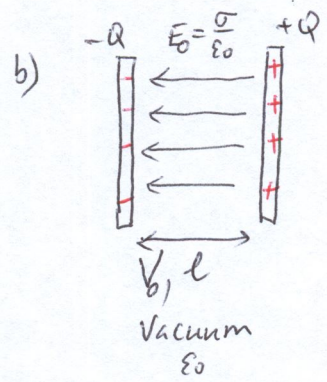 b)
-Q E₀ = σ/ε₀ +Q
- + 
- +
- +
- +
V₀, l
Vacuum
ε₀